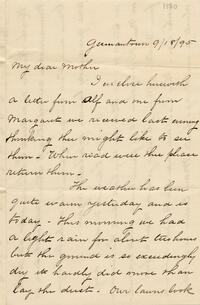 1180
Germantown 9/18/95
My dear Mother
I enclose herewith
a letter from Alf and one from
Margaret we received last evening
thinking thee might like to see
them - When read will thee please
return them -
The weather has been
quite warm yesterday and is
today - This morning we had
a light rain for about two hours
but the ground is so exceedingly
dry it hardly did more than
lay the dust. Our lawns look